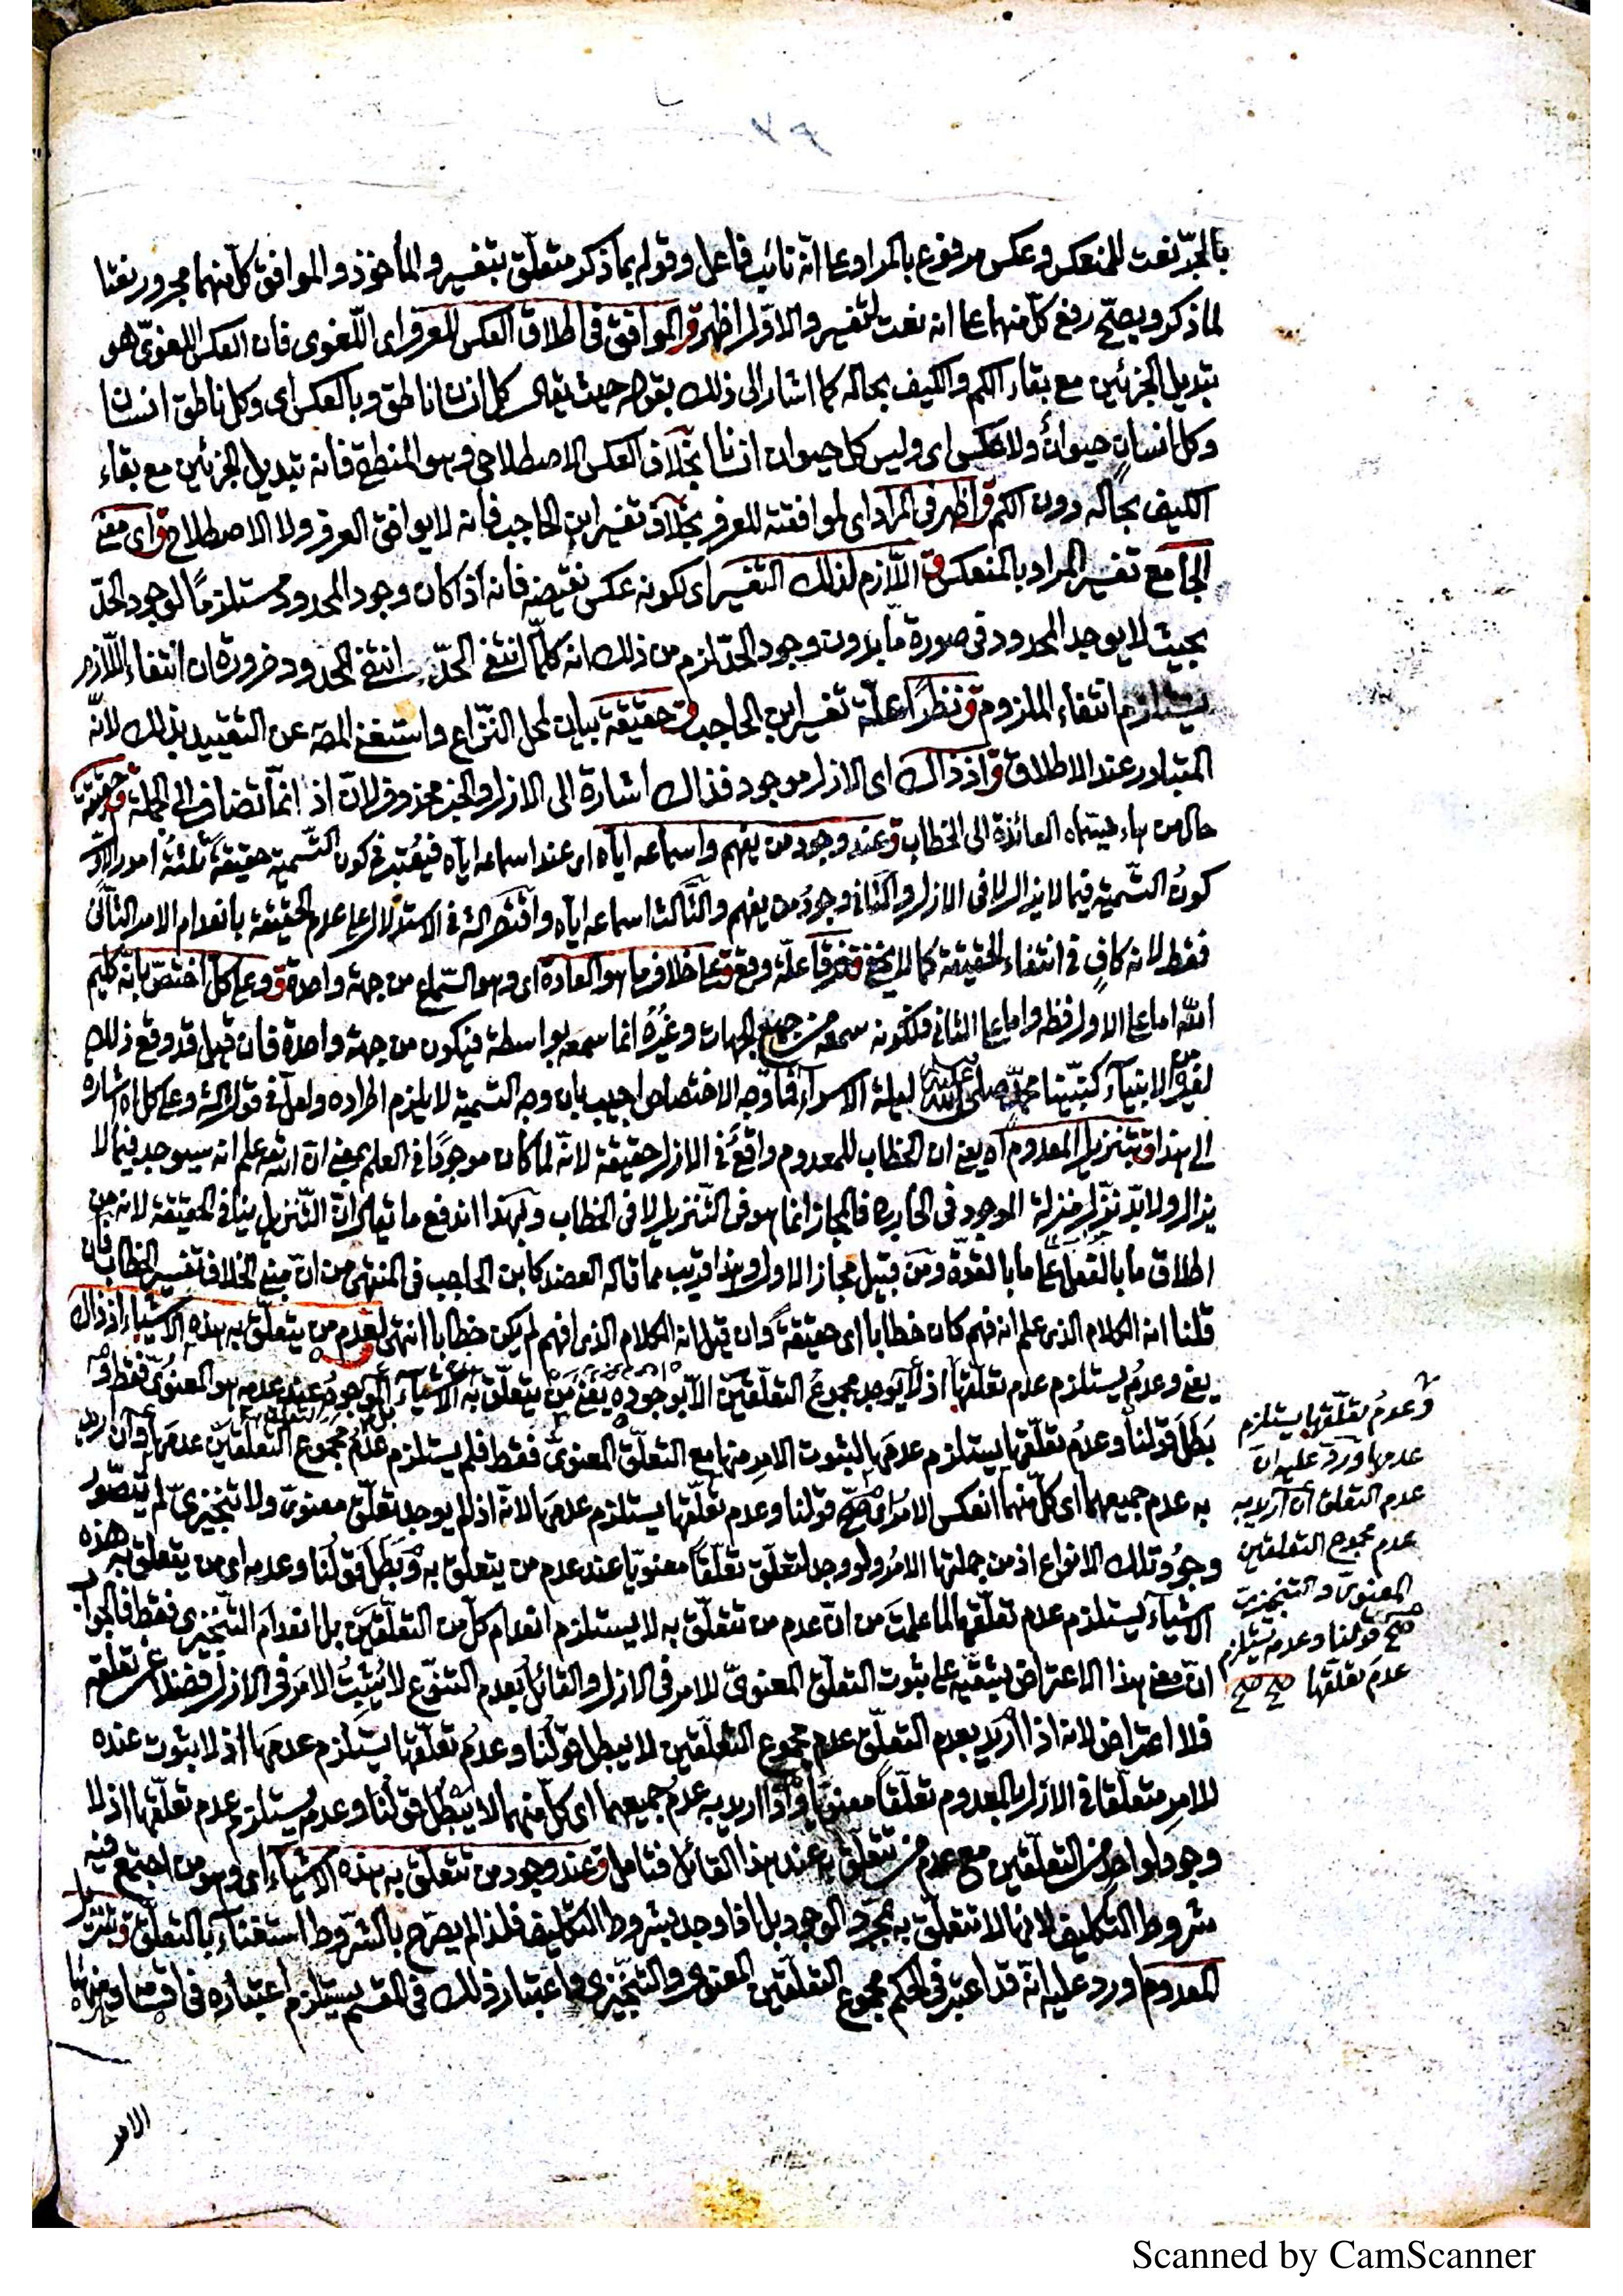 بالجرّ نعت للمنعكس وعكس مرفوع بالمراد على انه نائب فاعل وقوله بما ذكر متعلّق بتفسير والمأخوذ والموافق كل منهما مجرور نعتا
لما ذكر ويصحّ رفع كلّ منهما على انه نعت لتفسير والاوّل اظهر ق الموافق في اطلاق العكس للعرف اى اللّغوى فان العكس اللغوىّ هو
تبديل الجزئين مع بقاء الكم والكيف بحاله كما اشار الى ذلك بقوله حيث يقال كل انسان ناطق وبالعكس اى وكل ناطق انسان
وكل انسان حيوان ولا عكس اى وليس كل حيوان انسانا بخلاف العكس الاصطلاحى وهو المنطقى فانه تبديل الجزئين مع بقاء
الكيف بحاله دون الكم ق اظهر فى المراد اى لموافقته للعرف بخلاف تفسير ابن الحاجب فانه لا يوافق العرف ولا الاصطلاح ق اى معنى
الجامع تفسير المراد بالمنعكس ق اللّازم لذلك التفسير اى لكونه عكس نقيضه فانه اذا كان وجود المحدود مستلزماً لوجود الحدّ
بحيث لا يوجد المحدود فى صورة مّا بدون وجود الحدّ لزم من ذلك انه كلّما انتفى الحدّ انتفى المحدود ضرورة ان انتفاء اللّازم
يستلزم انتفاء الملزوم ق نظراً علّة تفسير ابن الحاجب ق حقيقة بيان لمحل النّزاع واستغنى المصـ عن التقييد بذلك لانّه
المتبادر عند الاطلاق ق اذ ذاك اى الازل موجود فذاك اشارة الى الازل والخبر محذوف لانّ اذ انّما تضاف الى الجملة ق حقيقة
حال من هاء تسميته العائدة الى الخطاب ق عند وجود من يفهم واسماعه اياه اى عند اسماعه اياه فيعتبر فى كون التّسمية حقيقةً ثلثة امور الاوّل
كونُ التّسمية فيما لا يزال لا فى الازل والثانى وجودُ من يفهم والثّالث اسماعه اياه واقتصر الشـ فى الاستدلال على عدم الحقيقة بانعدام الامر الثّانى
فقط لانه كافٍ فى انتفاء الحقيقة كما لا يخفى ق خرقاً علّة وقع ق على خلاف ما هو العادة اى وهو السّماع من جهة واحدة ق وعلى كل اختصّ بانّه كليم
اللّه اما على الاول فظـ واما على الثانى فلكونه سمعه من جميع الجهات وغيرُه انما سمعه بواسطة فيكون من جهة واحدة فان قيل قد وقع ذلك
لغيره من الانبياء كنبيّنا محمّد صلى الله عليه ليلة الاسراء فما وجه الاختصاص اجيب بان وجه التسمية لا يلزم اطراده ولعلّ فى قول الشـ وعلى كل اه اشارة
الى هذا ق بتنزيل المعدوم آه يعنى ان الخطاب للمعدوم واقع فى الازل حقيقة لانّه لمّا كان موجودًا فى العلم بمعنى انّ اللّه تع علم انه سيوجد فيما لا
يزال ولا بدّ نزّل منزلة الموجود فى الخارج فالمجاز انما هو فى التّنزيل لا فى الخطاب وبهذا اندفع ما يقال انّ التّنزيل ينافى الحقيقة لانه من
اطلاق ما بالفعل على ما بالقوّة ومن قبيل مجاز الاول وهذا قريب مما قاله العضد كابن الحاجب فى المنتهى من انّ مبنى الخلاف تفسير الخطاب فان
قلنا انه الكلام الذى علم انه فهم كان خطابا اى حقيقةً وان قيل انه الكلام الذى افهم لم يكن خطابا انتهى لعدم من يتعلّق به هذه الاشياء اذ ذاك
يعنى وعدمُ يستلزم عدم تعلّقها اذ لا يوجد مجموعُ التعلّقين الّا بوجوده يعنى من يتعلّق به الاشياء الموجودُ عند عدمه هو المعنوىّ فقط
بَطَلَ قولنا وعدمُ تعلّقها يستلزم عدمَها لثبوت الامر منها مع التعلّق المعنوىّ فقط فلم يستلزم عدمُ مجموع التعلّقين عدمَها وان اريد
به عدم جميعهما اى كلّ منهما انعكس الامرُ فصحّ قولنا وعدم تعلّقها يستلزم عدمَها لانّه اذ لم يوجد تعلّق معنوىّ ولا تنجيزىّ لم يتصوّر
وجودُ تلك الانواع اذ من جملتها الامرُ ولو وجد لتعلّق تعلّقاً معنويّا عند عدم من يتعلّق به وبَطَل قولُنا وعدمه اى من يتعلّق به هذه
الاشياء يستلزم عدم تعلّقها لما علمتَ من انّ عدم من تتعلّق به لا يستلزم انعدام كلّ من التعلّقين بل انعدامَ التّنجيزى فقط فالجواب
انّ معنى هذا الاعتراض يبتنى على ثبوت التعلّق المعنوىّ للامر فى الازل والقائلُ بعدم التنوّع لا يُثبِتُ الامرَ فى الازل فضلا عن تعلّقه
فلا اعتراض لانه اذا اريد بعدم التعلّق عدم مجموع التعلّقين لا يبطل قولُنا وعدمُ تعلّقها يستلزم عدمَها اذ لا ثبوت عنده
للامر متعلّقا فى الازل بالمعدوم تعلّقاً معنويّا واذا اريد به عدمُ جميعهما اى كلّ منهما لا يبطل قولُنا وعدمه يستلزم عدم تعلّقها اذ لا
وجود لواحد من التعلّقين مع عدم من تتعلّق به عند هذا القائل فتامل ق عند وجود من تتعلّق به هذه الاشياء اى وهو من اجتمع فيه
شروط التكليف لانها لا تتعلّق به بمجرّد الوجود بل اذا وجد بشروط التكليف فلذا لم يصرّح بالشّروط استغناءً بالتعلّق ق بتنزيل
المعدوم اورد عليه انّه قد اعتبر فى الحكم مجموع التعلّقين المعنوى والتنجيزى واعتبار ذلك فى المقسم يستلزم اعتباره فى اقسامه ومنها
الامر
وعدمُ تعلّقها يستلزم
عدمها اورد عليه ان
عدم التعلق ان اريد به
عدم مجموع التعلقين
المعنوىّ والتنجيزىّ
صحّ قولنا وعدمه يستلزم
عدمَ تعلّقها صح صح
Scanned by CamScanner